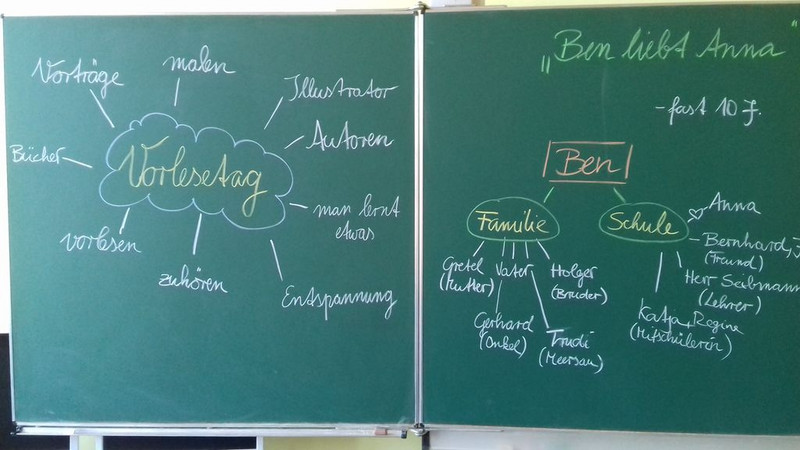 Vorträge
malen
Illustrator
Autoren
Bücher
Vorlesetag
man lernt
etwas
vorlesen
zuhören
Entspannung
„Ben liebt Anna"
- fast 10 J.
Ben
Familie
Schule
Gretel
(Mutter)
Vater
Holger
(Bruder)
Gerhard
(Onkel)
Trudi
(Meersau)
Anna
Bernhard, J
(Freund)
Herr Seibmann
(Lehrer)
Katja + Regine
(Mitschülerin)